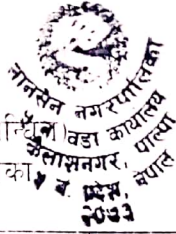 तानसेन नगरपालिका
न्वित)वडा कार्यालय
कैलाशनगर, पाल्पा
का
प्रदेश, नेपाल
२०७३